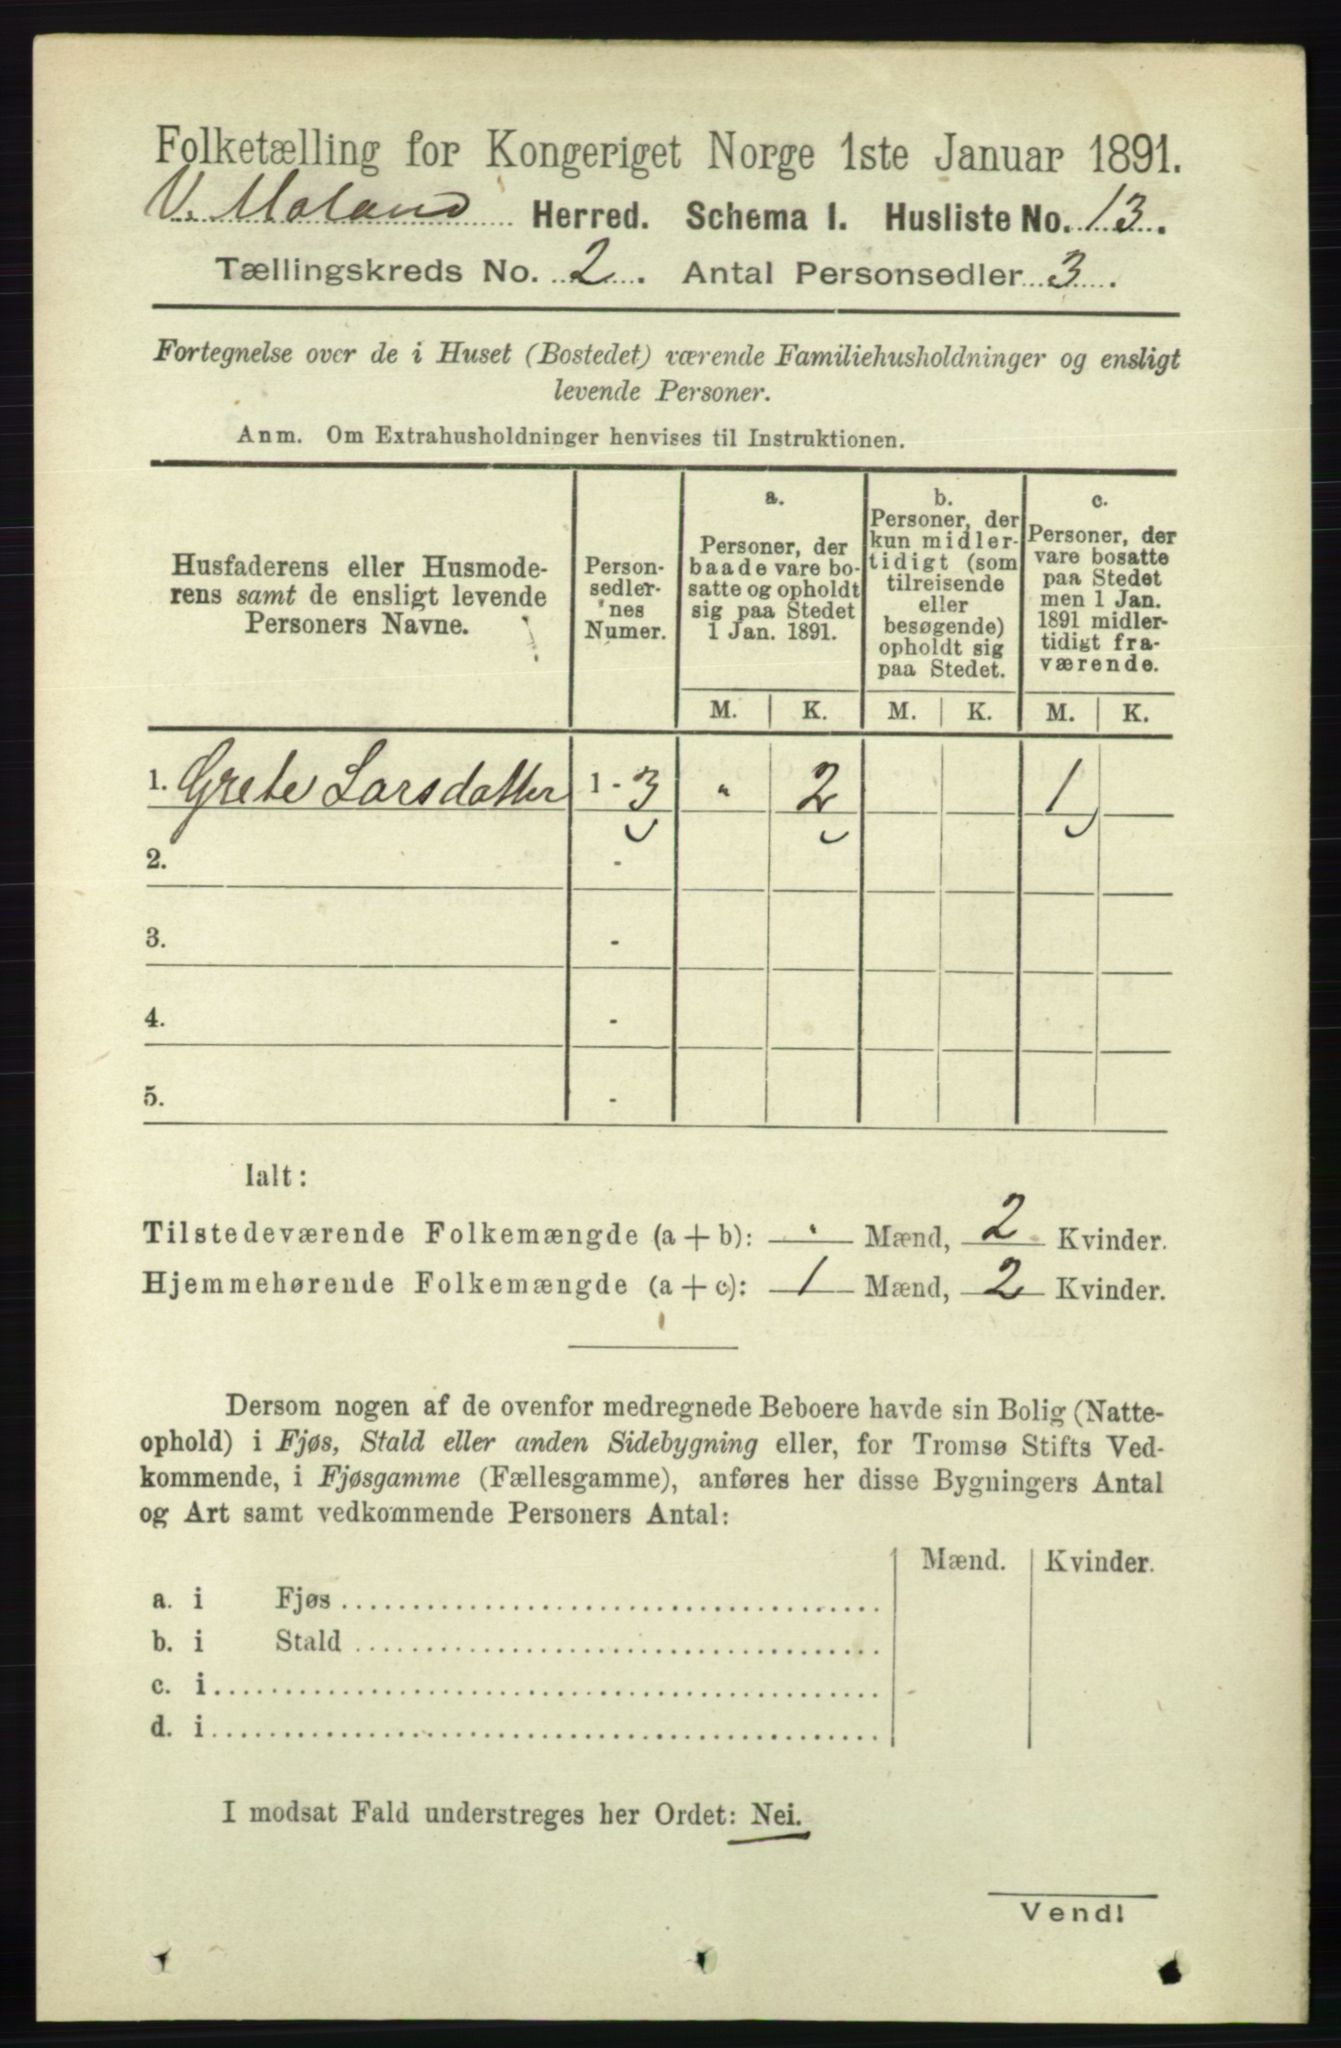 Folketælling for Kongeriget Norge 1ste Januar 1891.
V. Moland Herred. Schema I. Husliste No. 13.
Tællingskreds No. 2. Antal Personsedler 3.
Fortegnelse over de i Huset (Bostedet) værende Familiehusholdninger og ensligt
levende Personer.
Anm. Om Extrahusholdninger henvises til Instruktionen.
Husfaderens eller Husmode-
rens samt de ensligt levende
Personers Navne.
Person-
sedler-
nes
Numer.
a.
Personer, der
baade vare bo-
satte og opholdt
sig paa Stedet
1 Jan. 1891.
b.
Personer, der
kun midler-
tidigt (som
tilreisende
eller
besøgende)
opholdt sig
paa Stedet.
c.
Personer, der
vare bosatte
paa Stedet
men 1 Jan.
1891 midler-
tidigt fra-
værende.
M. K. M. K. M. K.
1. Grete Larsdatter 1-3 " 2 1
2. -
3. -
4. -
5. -
Ialt:
Tilstedeværende Folkemængde (a + b): . Mænd, 2 Kvinder.
Hjemmehørende Folkemængde (a + c): 1 Mænd, 2 Kvinder.
Dersom nogen af de ovenfor medregnede Beboere havde sin Bolig (Natte-
ophold) i Fjøs, Stald eller anden Sidebygning eller, for Tromsø Stifts Ved-
kommende, i Fjøsgamme (Fællesgamme), anføres her disse Bygningers Antal
og Art samt vedkommende Personers Antal:
Mænd. Kvinder.
a. i Fjøs
b. i Stald
c. i
d. i
I modsat Fald understreges her Ordet: Nei.
Vend!